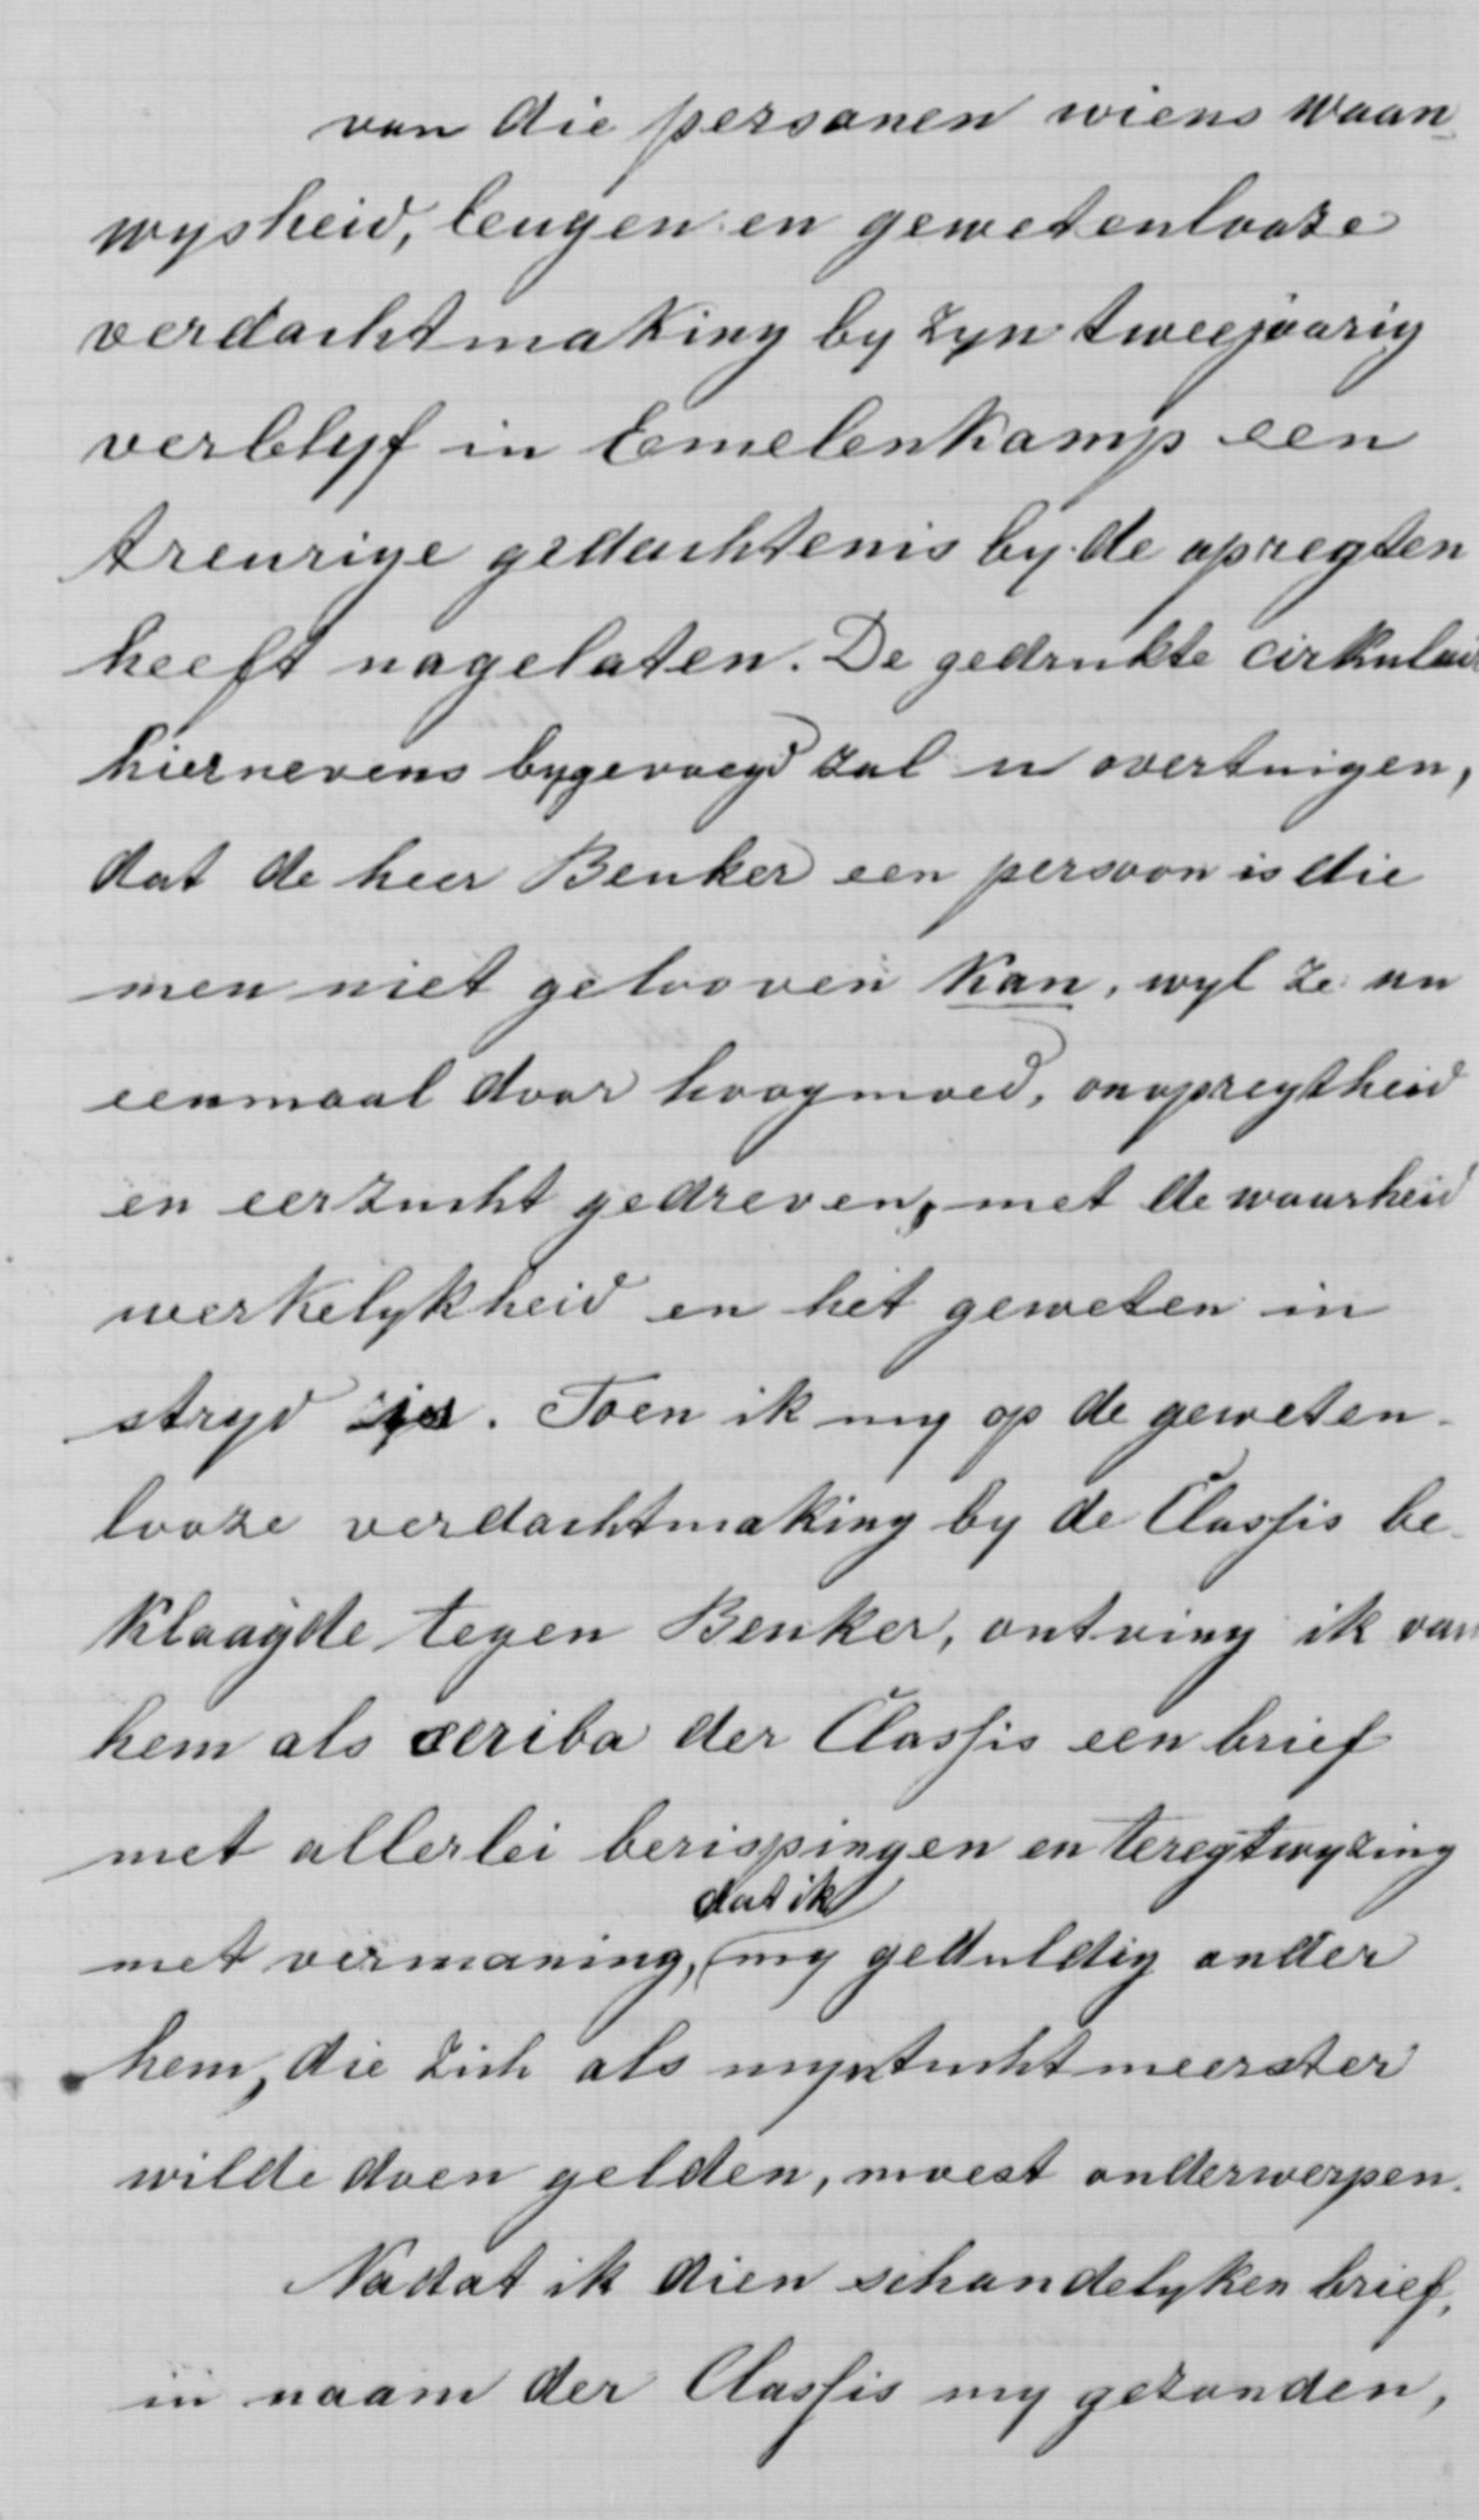 van die personen wiens waan
wysheid, leugen en gewetenlooze
verdachtmaking by zyn tweejaarig
verblyf in Eemelenkamp een
treurige gedachtenis by de opregten
heeft nagelaten. De gedrukte cirkulair
hiernevens bygevoegd zal u overtuigen,
dat de heer Beuker een persoon is die
men niet gelooven kan, wyl ze nu
eenmaal door hoogmoed, onopregtheid
en eerzucht gedreven, met de waarheid
werkelykheid en het geweten in
stryd is. Toen ik my op de geweten-
looze verdachtmaking by de Classis be-
klaagde tegen Beuker, ontving ik van
hem als scriba der Classis een brief
met allerlei berispingen en teregtwyzing
dat ik
met vermaning, my geduldig onder
hem, die zich als myn tuchtmeerster
wilde doen gelden, moest onderwerpen.
Nadat ik dien schandelyken brief,
in naam der Classis my gezonden,